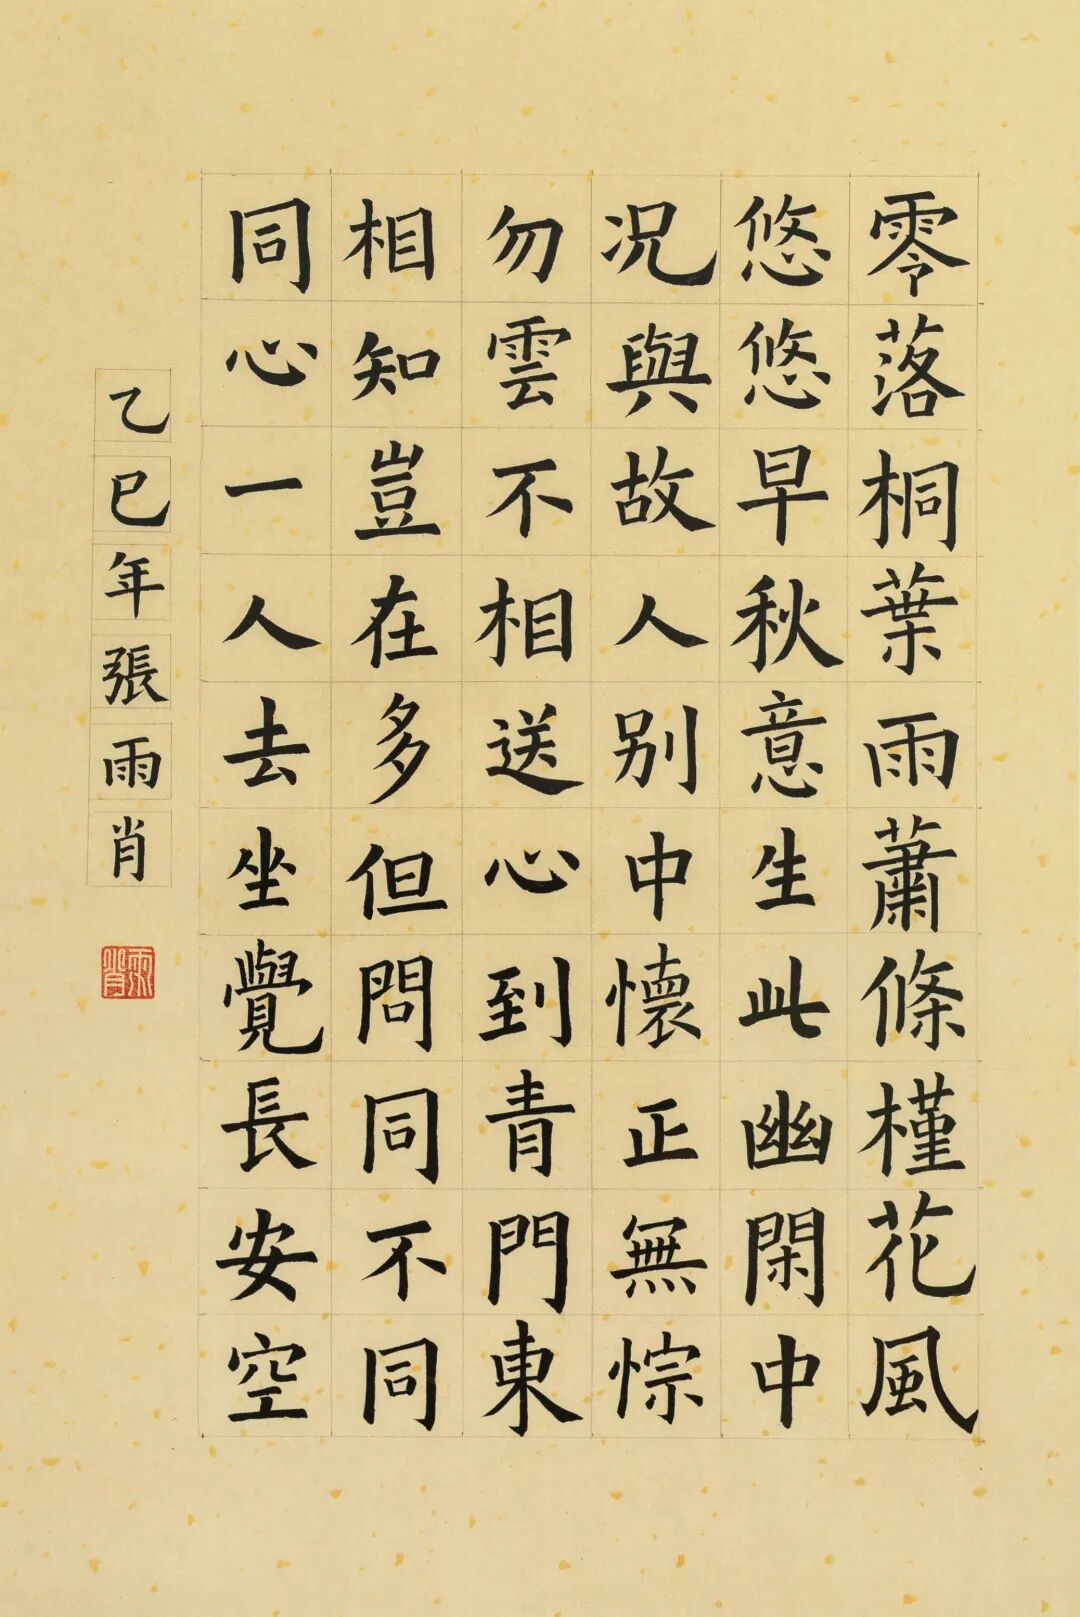 零落桐葉雨蕭條槿花風
悠悠早秋意生此幽閑中
况與故人别中懷正無悰
勿雲不相送心到青門東
相知豈在多但問同不同
同心一人去坐覺長安空
乙巳年張雨肖
雨肖